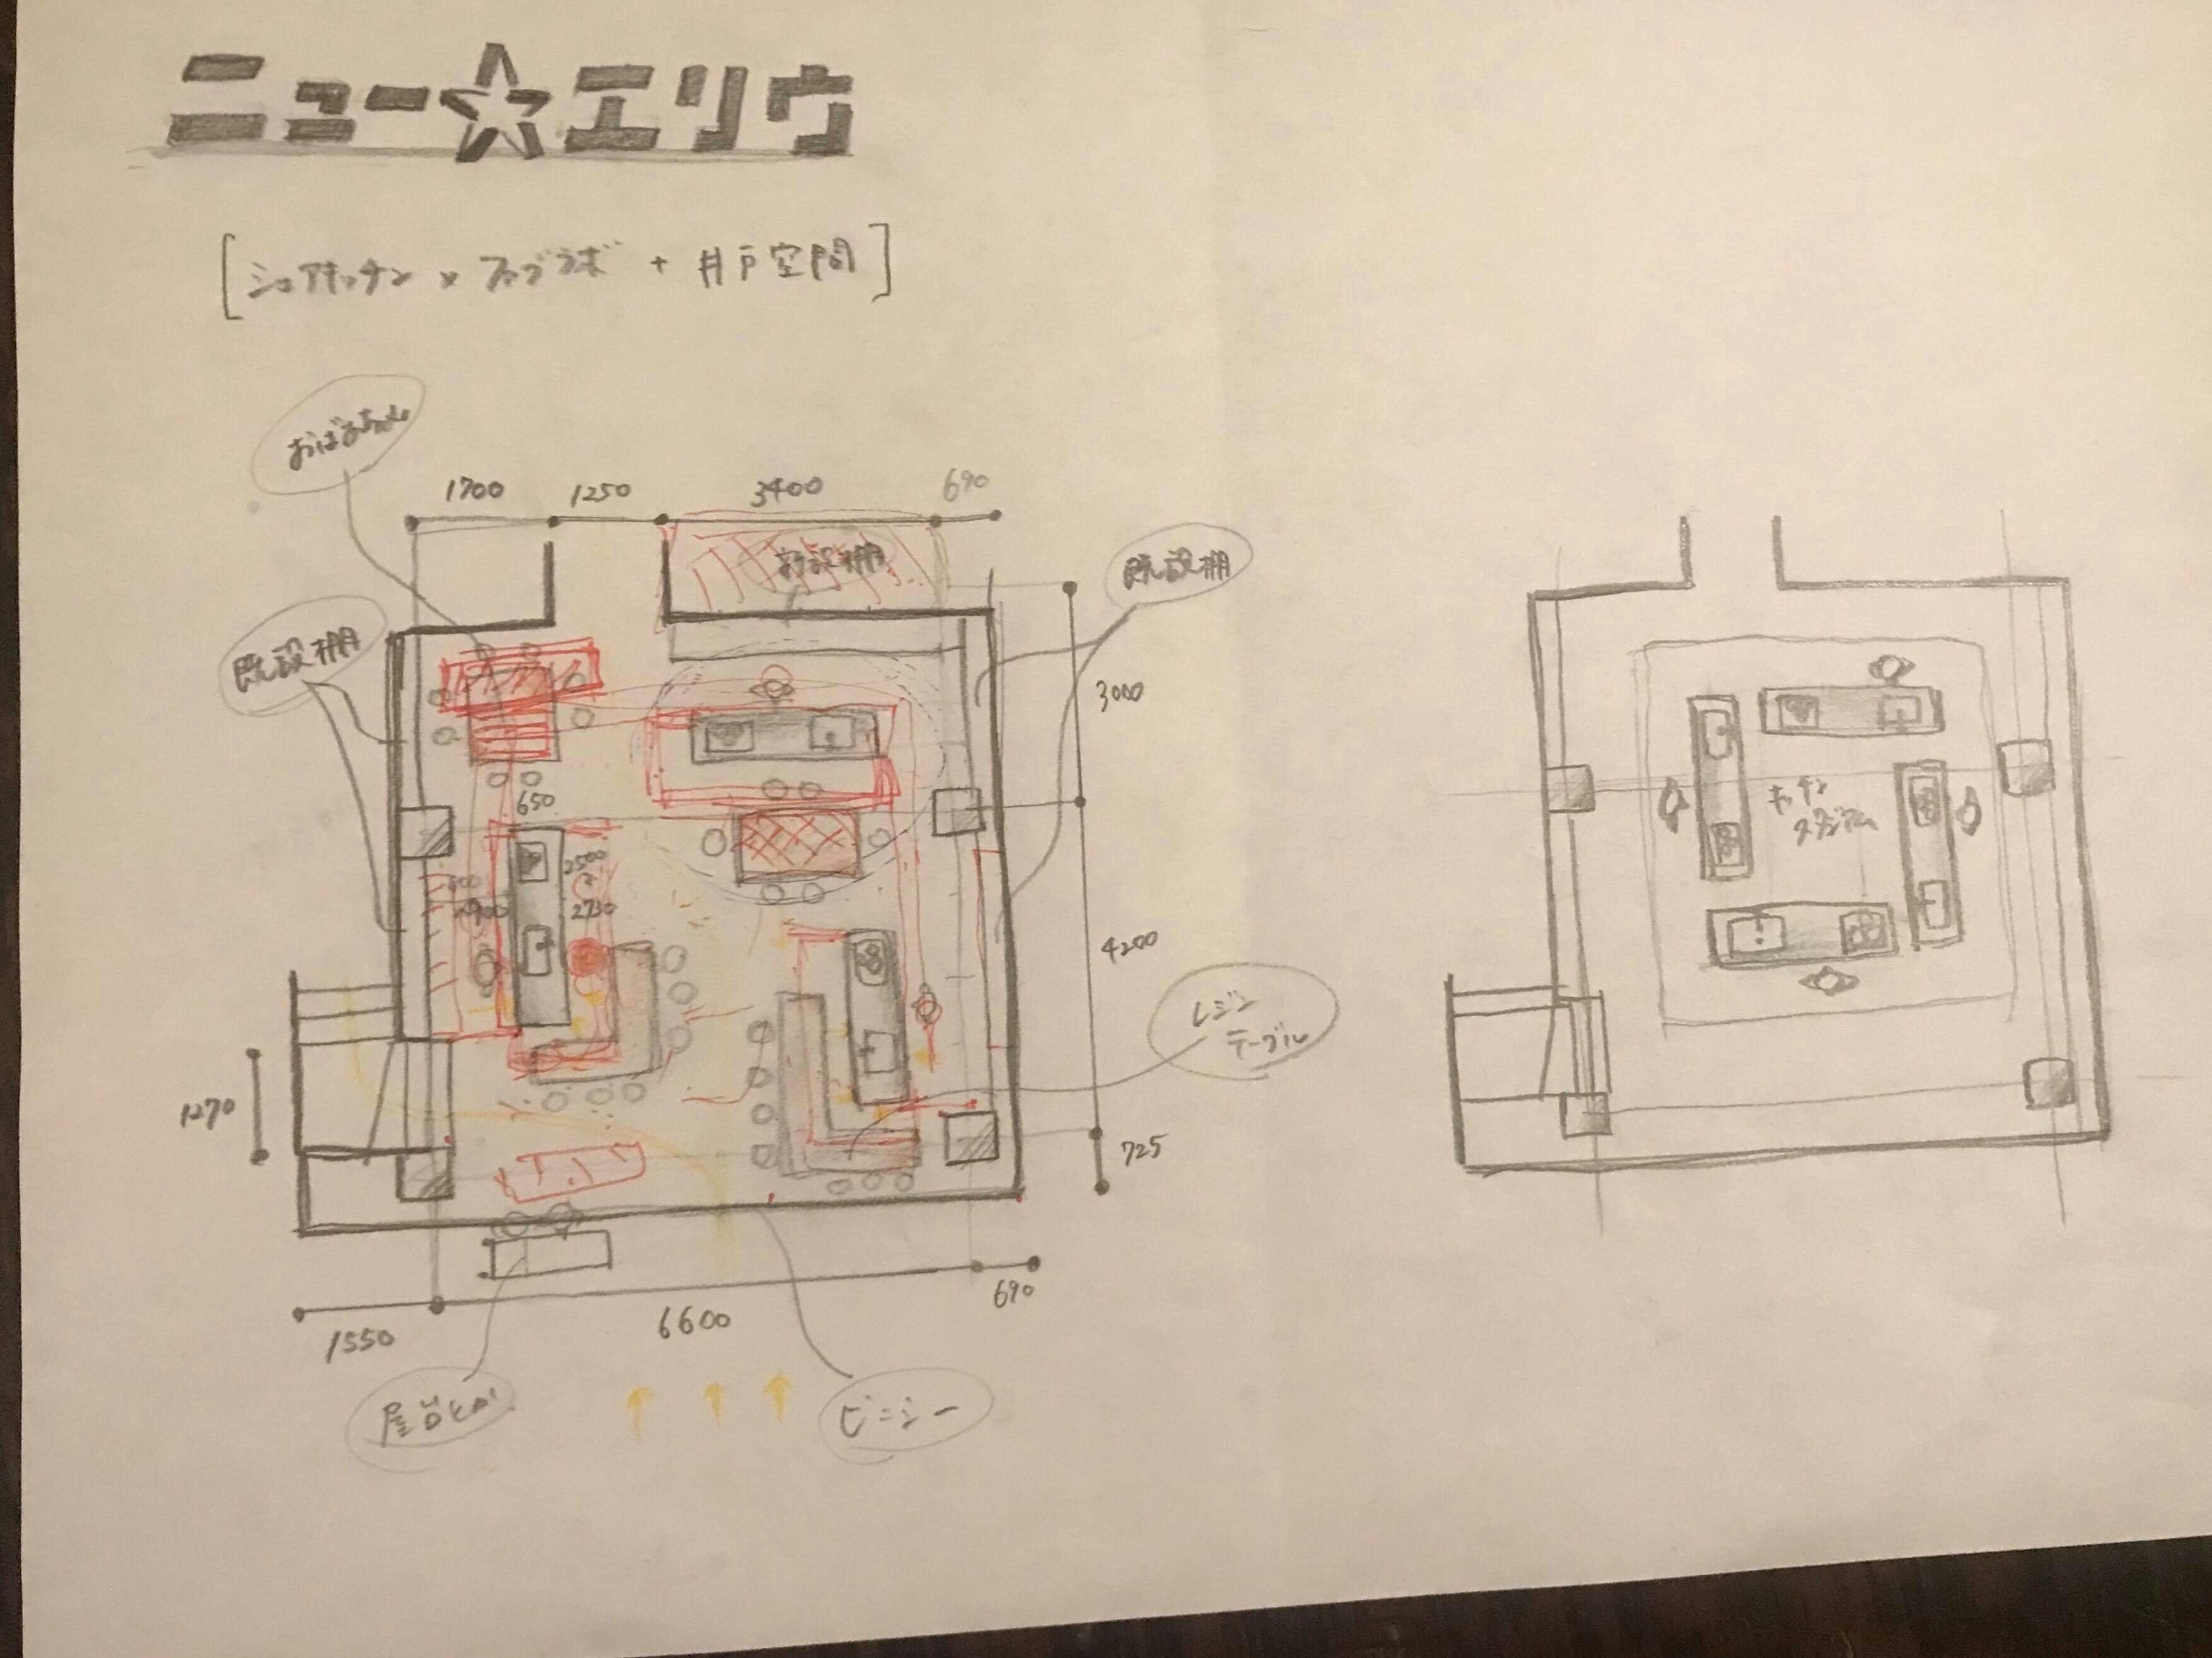 ニュー☆エリウ
[シェアキッチン × ファブラボ + 井戸空間]
おばあちゃん
1700 1250 3400 690
新設棚
既設棚
既設棚
3000
650
2500
900
2730
4200
レジン
テーブル
1270
725
690
1550 6600
屋台
ビニシー
キッチン
スタジアム